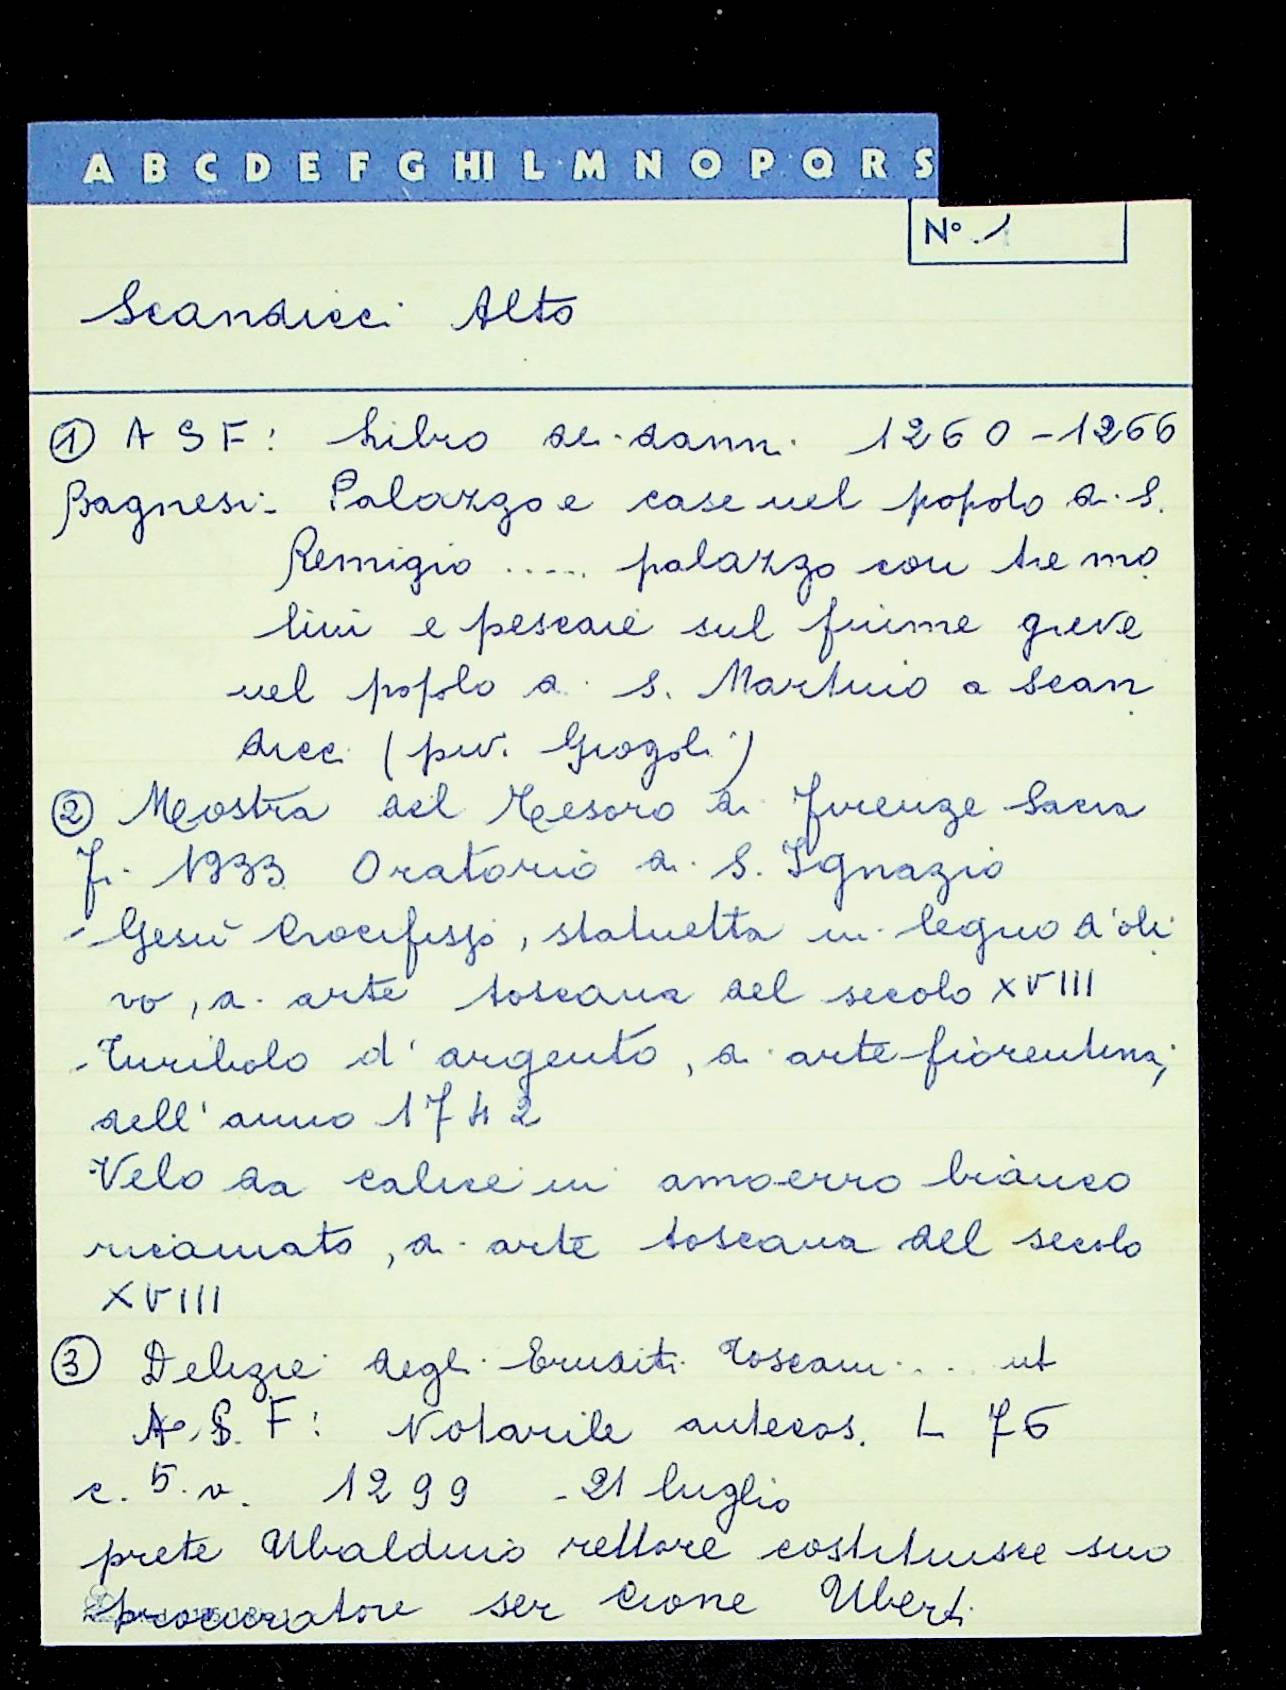 A B C D E F G HI L M N O P Q R S
N° 1
Scandicci Alto
① A S F: Libro dei danni 1260-1266
Bagnesi - Palazzo e case nel popolo di S.
Remigio ..... palazzo con tre mo
lini e pescaie sul fiume greve
nel popolo di S. Martino a Scan
dicci (piv. Giogoli)
② Mostra del Tesoro di Firenze Sacra
Fi. 1933 Oratorio di S. Ignazio
- Gesù Crocifisso, statuetta in legno d'oli
vo, di arte toscana del secolo XVIII
- Turibolo d'argento, di arte fiorentina,
dell'anno 1742
- Velo da calice in amoerro bianco
ricamato, di arte toscana del secolo
XVIII
③ Delizie degli Eruditi Toscani ... ut
A.S.F: Notarile antecos. L 76
c. 5.v. 1299 - 21 luglio
prete Ubaldino rettore costituisce suo
procuratore ser Cione Uberti